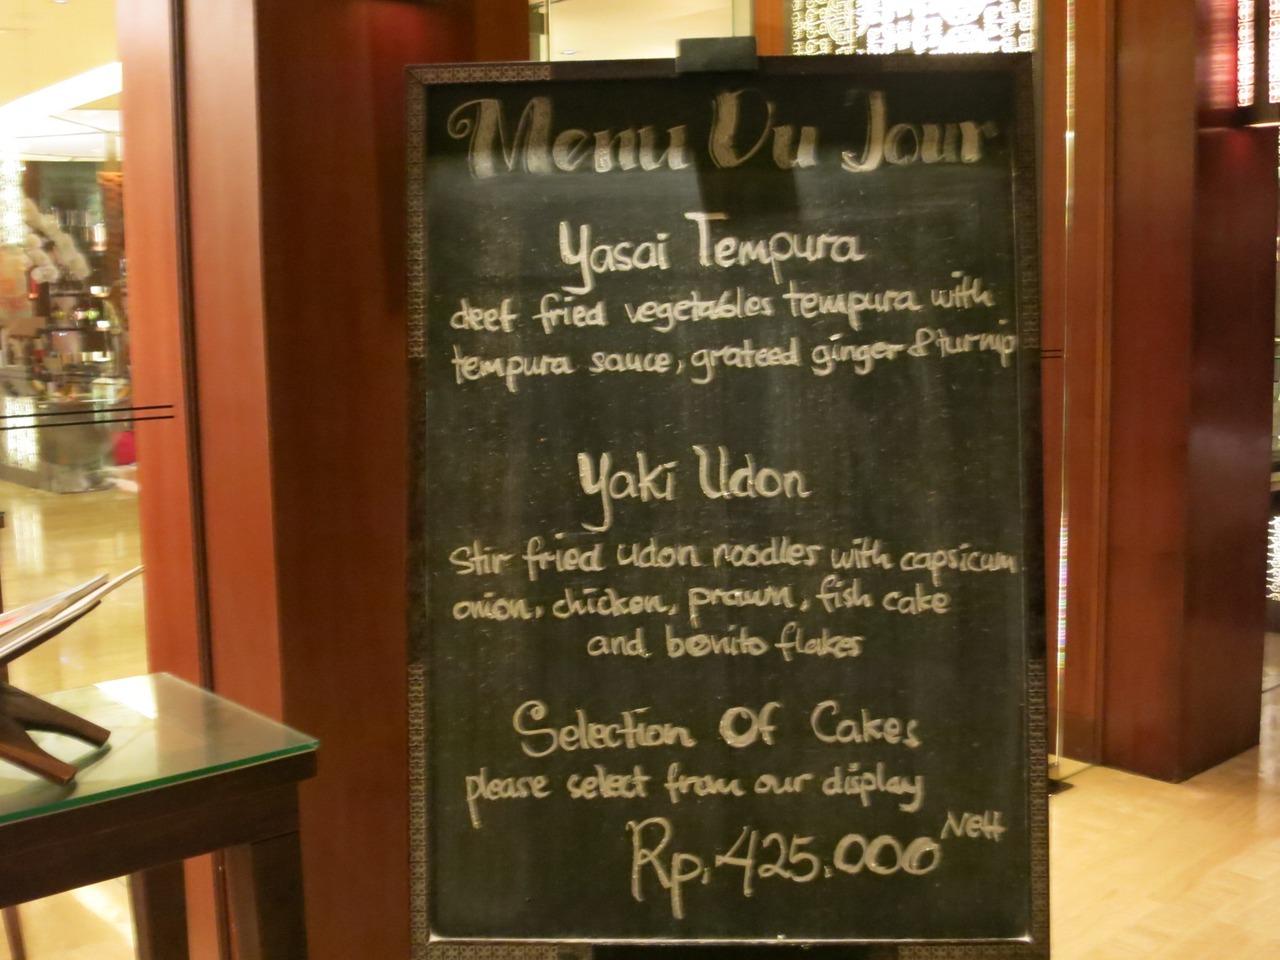 Menu Du Jour
Yasai Tempura
deef fried vegetables tempura with
tempura sauce, grateed ginger & turnip
Yaki Udon
Stir fried udon noodles with capsicum
onion, chicken, prawn, fish cake
and bonito flakes
Selection Of Cakes
please select from our display
Rp. 425.000 Nett